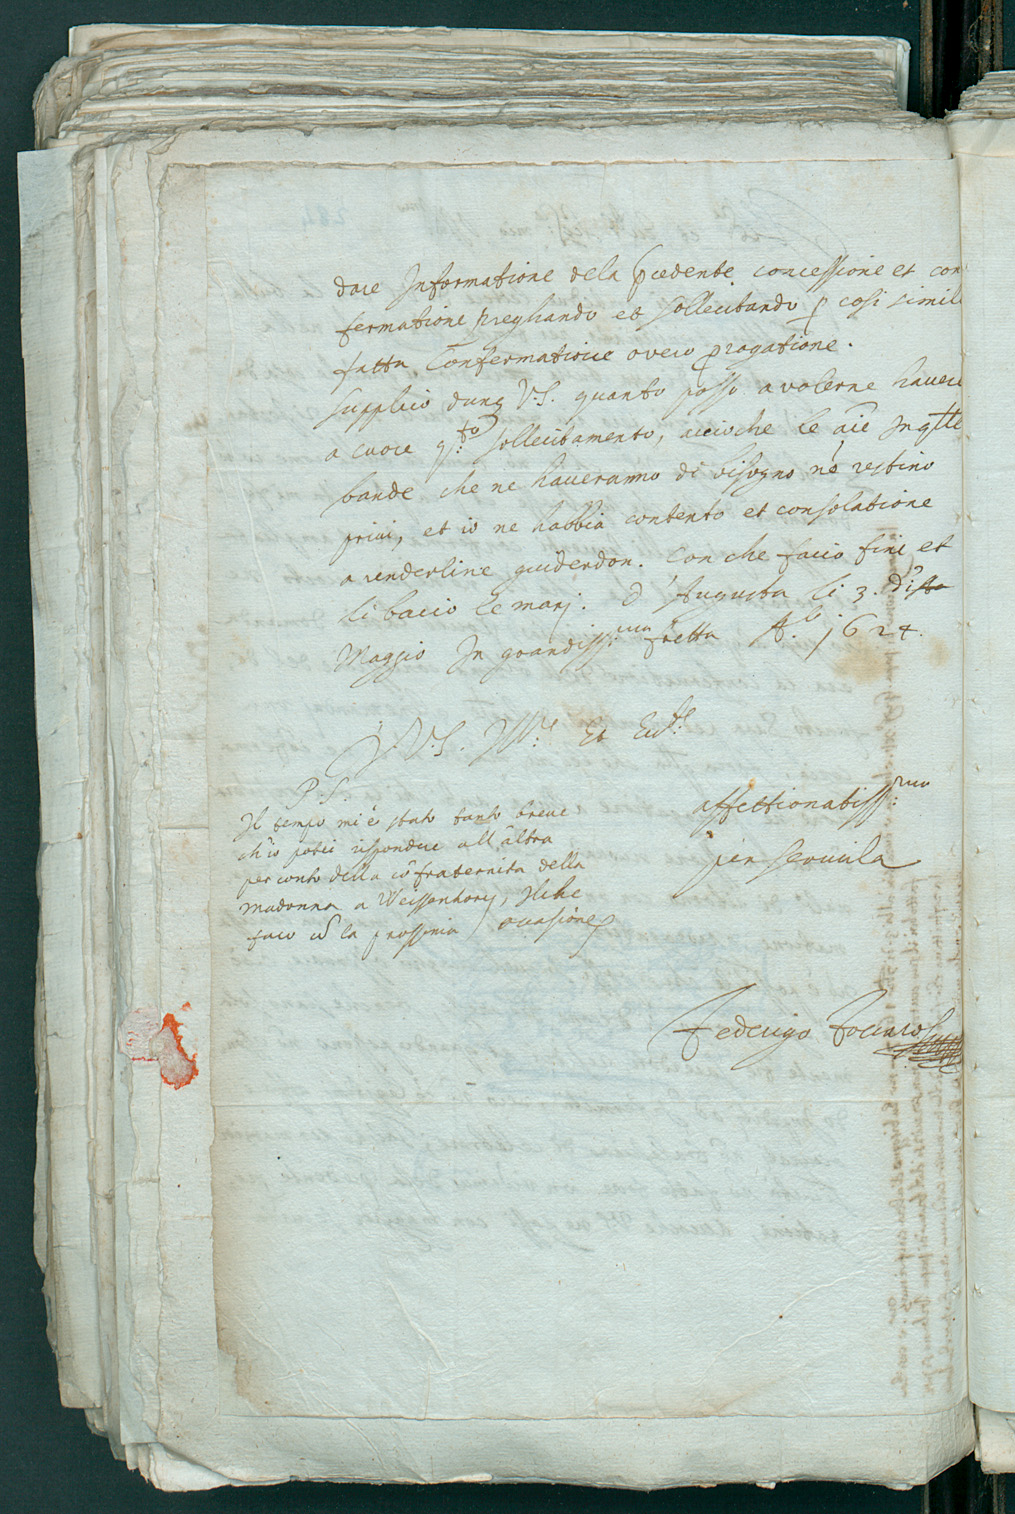 dare Informatione dela p̄cedente concessione et con
fermatione preghando et sollecitando p̱ cosi simil
fatta Confermatione overo p̱rogatione.
supplico dunq̃ V.S. quanto posso a volerne havere
a cuore q.sto sollecitamento, accioche le aı̃e In q̃lle
bande che ne haveranno di bisogno nõ restino
privi, et io ne habbia contento et consolatione
a renderline guiderdon. Con che facio fine et
li bacio le manj. d'Augusta li 3. di
Maggio In grandiss.ma fretta A.o 1624.
D. V.S. Ill.re Et Ecc.te
P.S.
Il tempo mi è stato tanto breve
ch'io potei rispondere all'altra
per conto della cõfraternita della
Madonna a Weissenhorn, Ilche
facio cõ la prossima occasione
affettionatiss.mo
per servirla
Federigo Foccaro